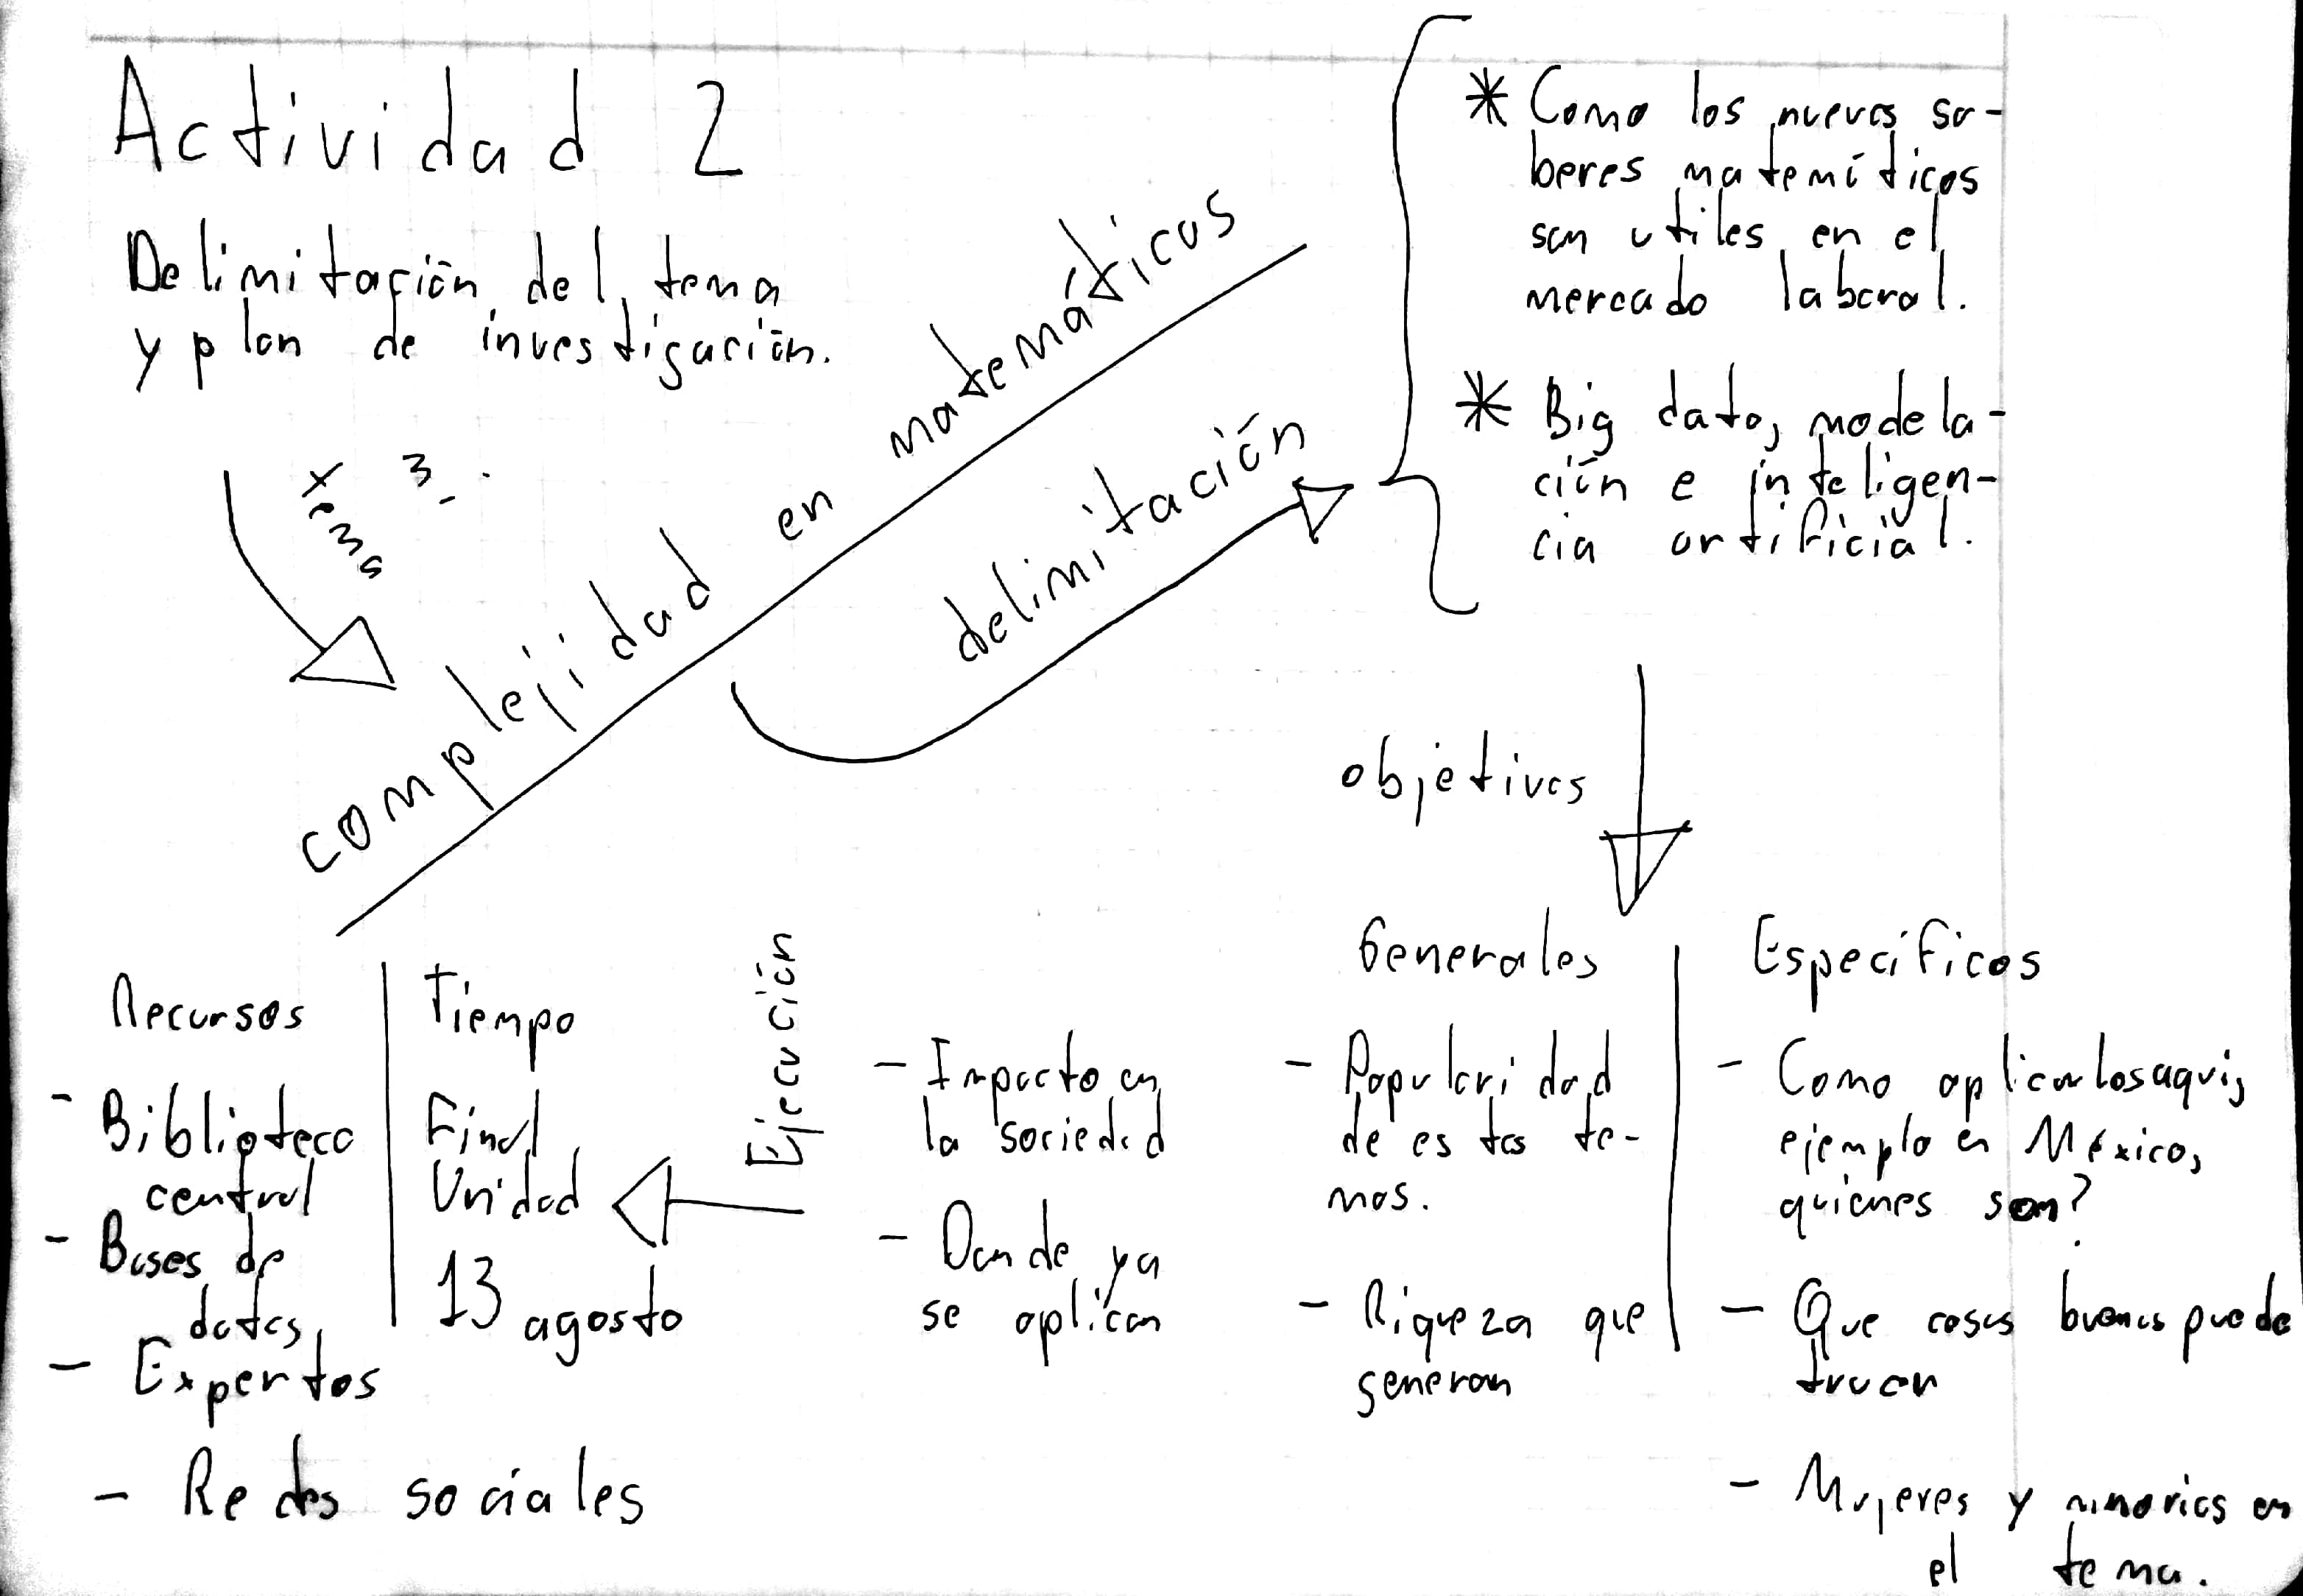 Actividad 2
Delimitación del tema
y plan de investigación.
tema
complejidad en matemáticas
delimitación
* Como los nuevos sa-
beres matemáticos
son utiles en el
mercado laboral.
* Big data, modela-
ción e inteligen-
cia artificial.
objetivos
Generales
- Popularidad
de estos te-
mas.
- Riqueza que
generan
- Impacto en
la sociedad
- Donde ya
se aplican
Específicos
- Como aplicarlos aqui,
ejemplo en México,
quienes son?
- Que cosas buenas puede
traer
- Mujeres y minorias en
el tema.
Ejecución
Tiempo
Final
Unidad
13 agosto
Recursos
- Biblioteca
central
- Bases de
datos,
- Expertos
- Redes sociales